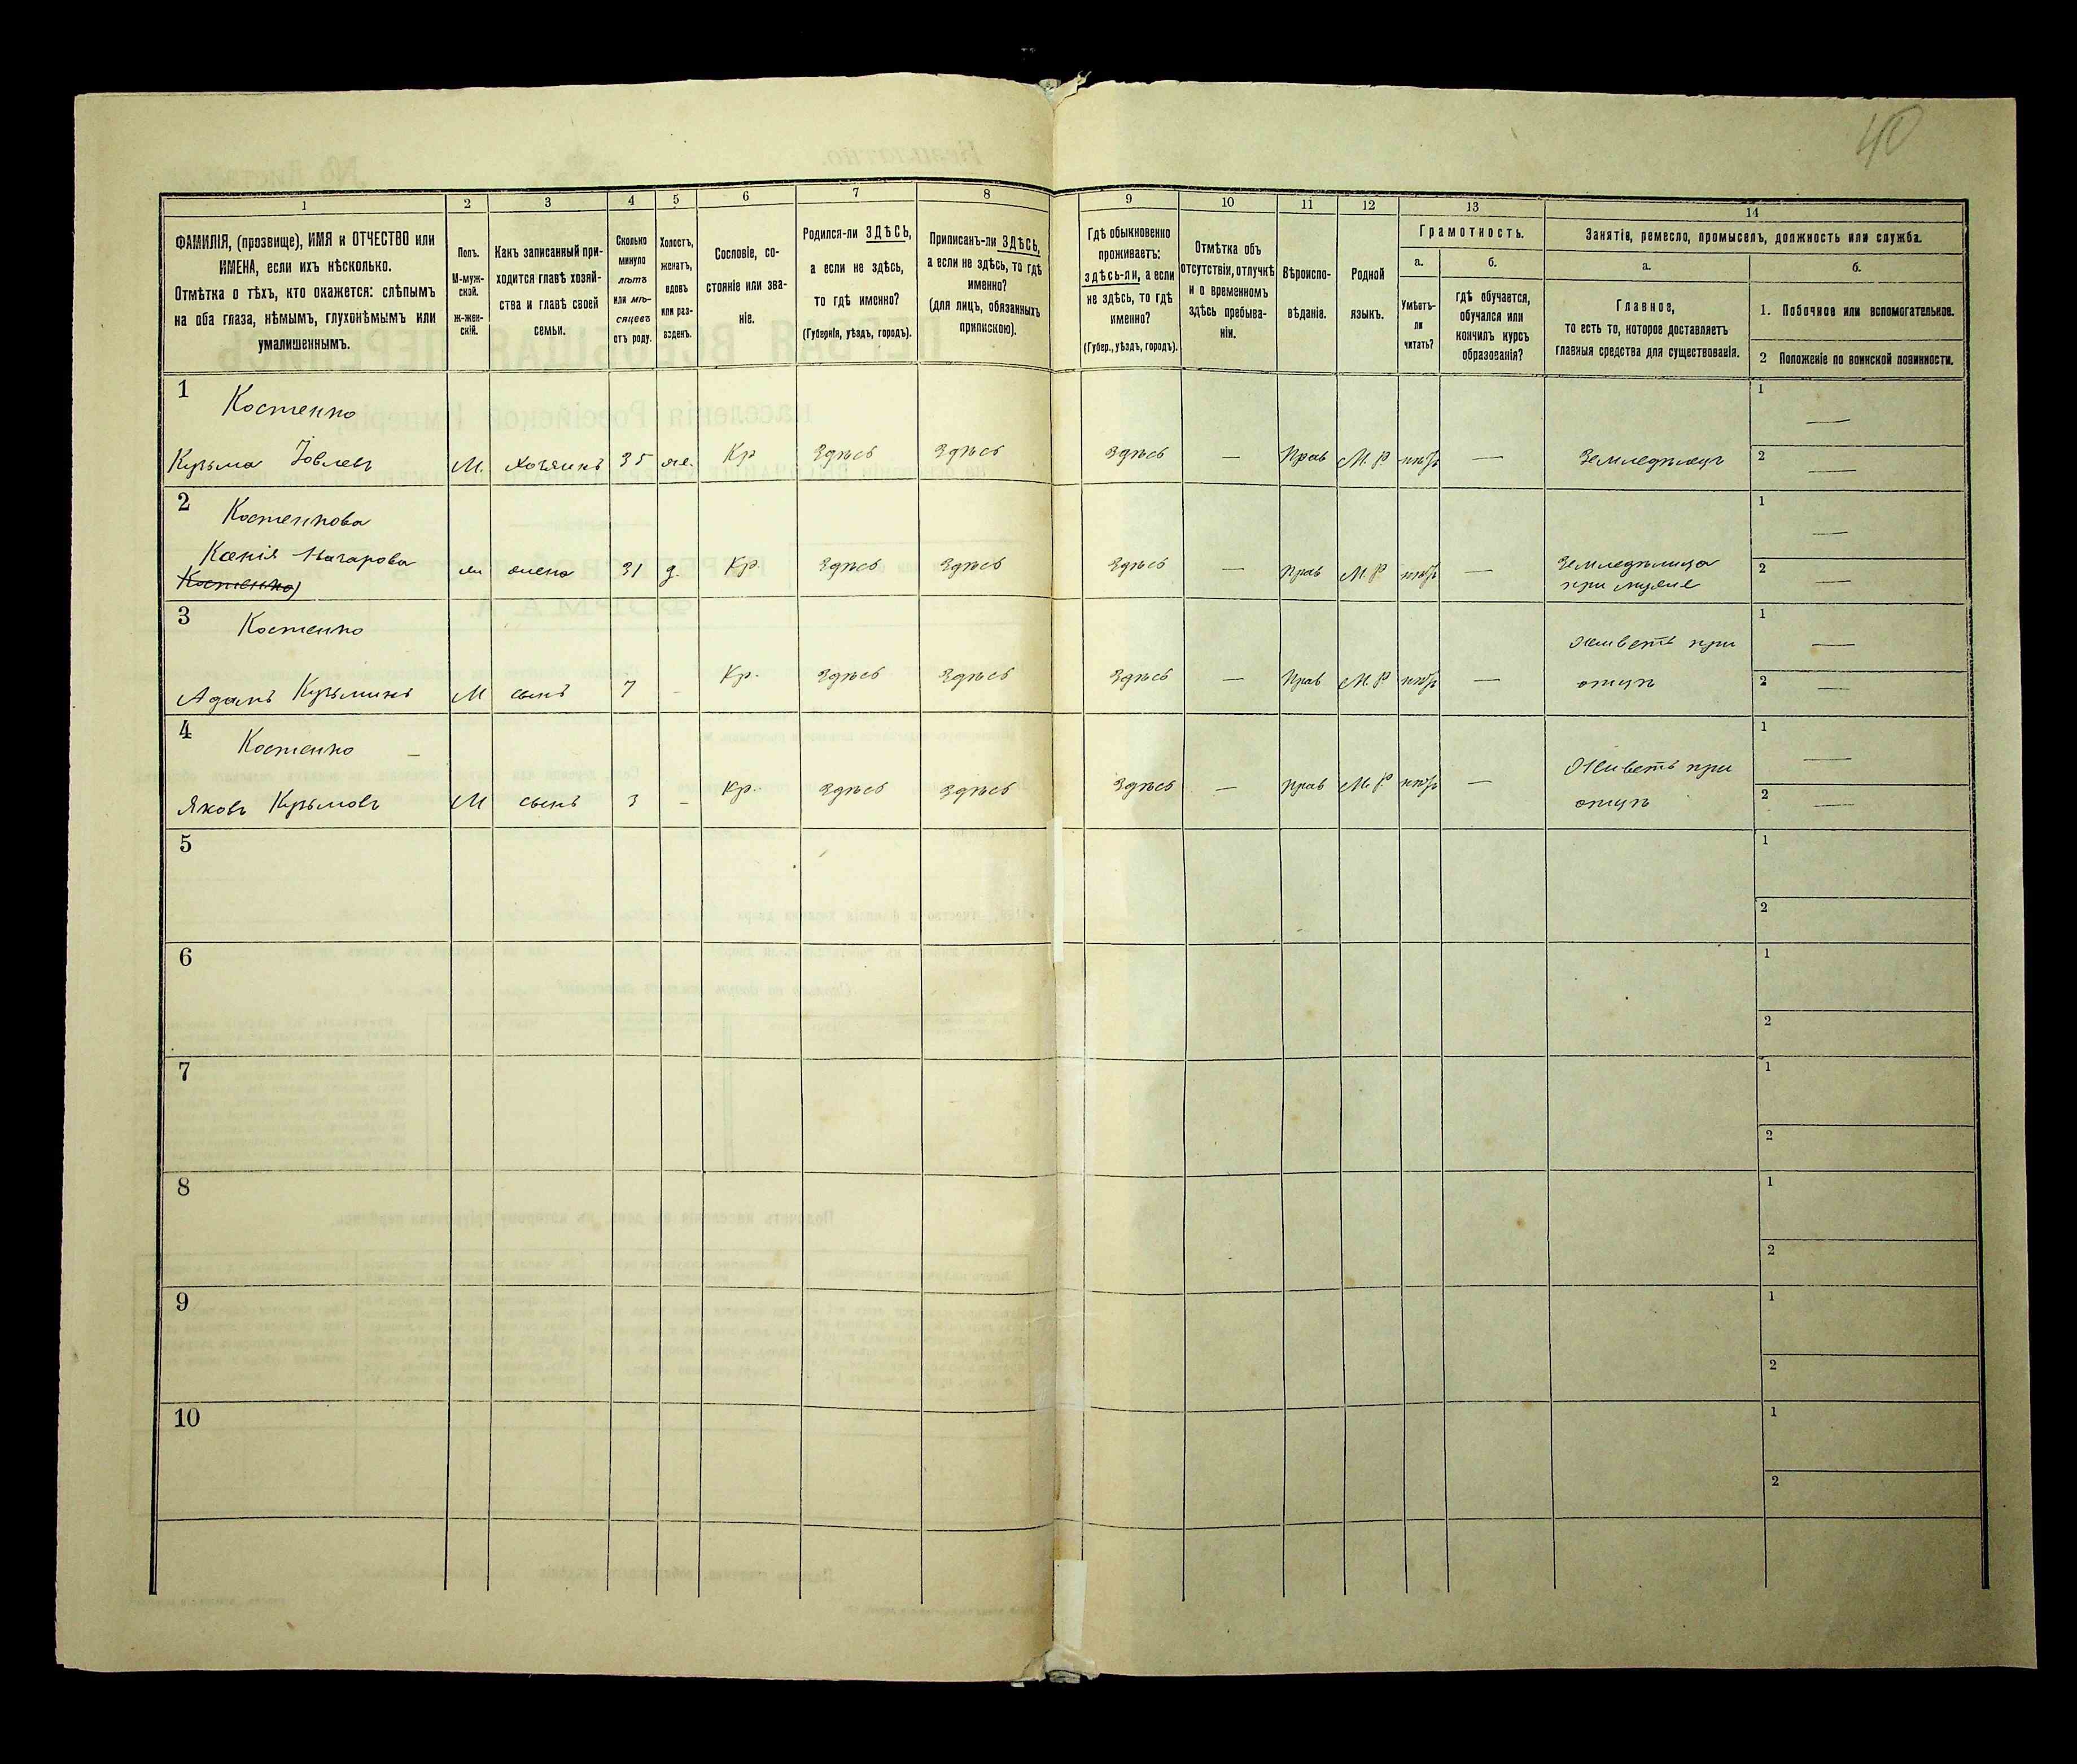 40
1 2 3 4 5 6 7 8 9 10 11 12 13 14
ФАМИЛІЯ, (прозвище), ИМЯ и ОТЧЕСТВО или
ИМЕНА, если ихъ нѣсколько.
Отмѣтка о тѣхъ, кто окажется: слѣпымъ
на оба глаза, нѣмымъ, глухонѣмымъ или
умалишеннымъ.
Полъ.
М-муж-
ской.
ж-жен-
скій.
Какъ записанный при-
ходится главѣ хозяй-
ства и главѣ своей
семьи.
Сколько
минуло
лѣтъ
или мѣ-
сяцевъ
отъ роду.
Холостъ,
женатъ,
вдовъ
или раз-
веденъ.
Сословіе, со-
стояніе или зва-
ніе.
Родился-ли ЗДѢСЬ,
а если не здѣсь,
то гдѣ именно?
(Губернія, уѣздъ, городъ).
Приписанъ-ли ЗДѢСЬ,
а если не здѣсь, то гдѣ
именно?
(для лицъ, обязанныхъ
припискою).
Гдѣ обыкновенно
проживаетъ:
здѣсь-ли, а если
не здѣсь, то гдѣ
именно?
(Губер., уѣздъ, городъ).
Отмѣтка объ
отсутствіи, отлучкѣ
и о временномъ
здѣсь пребыва-
ніи.
Вѣроиспо-
вѣданіе.
Родной
языкъ.
Грамотность.
а.
Умѣетъ-
ли
читать?
б.
гдѣ обучается,
обучался или
кончилъ курсъ
образованія?
Занятія, ремесло, промыселъ, должность или служба.
а.
Главное,
то есть то, которое доставляетъ
главныя средства для существованія.
б.
1. Побочное или вспомогательное.
2 Положеніе по воинской повинности.
1 Костенко
Кузьма Іовлевъ М. хозяинъ 35 же. Кр Здѣсь Здѣсь Здѣсь — Прав М.Р. — Земледѣлецъ
1 —
2 —
2 Костенкова
Ксенія жена 31 Кр. Здѣсь Здѣсь Здѣсь — Прав М.Р. — Земледѣлица
Костенко при мужѣ
1 —
2 —
3 Костенко Живетъ при
Адамъ Кузьминъ М сынъ 7 - Кр. Здѣсь Здѣсь Здѣсь — Прав М.Р. — отцѣ
1 —
2 —
4 Костенко — Живетъ при
Яковъ Кузьмовъ М сынъ 3 - Кр. Здѣсь Здѣсь Здѣсь — Прав М.Р. — отцѣ
1 —
2 —
5 1
2
6 1
2
7 1
2
8 1
2
9 1
2
10 1
2